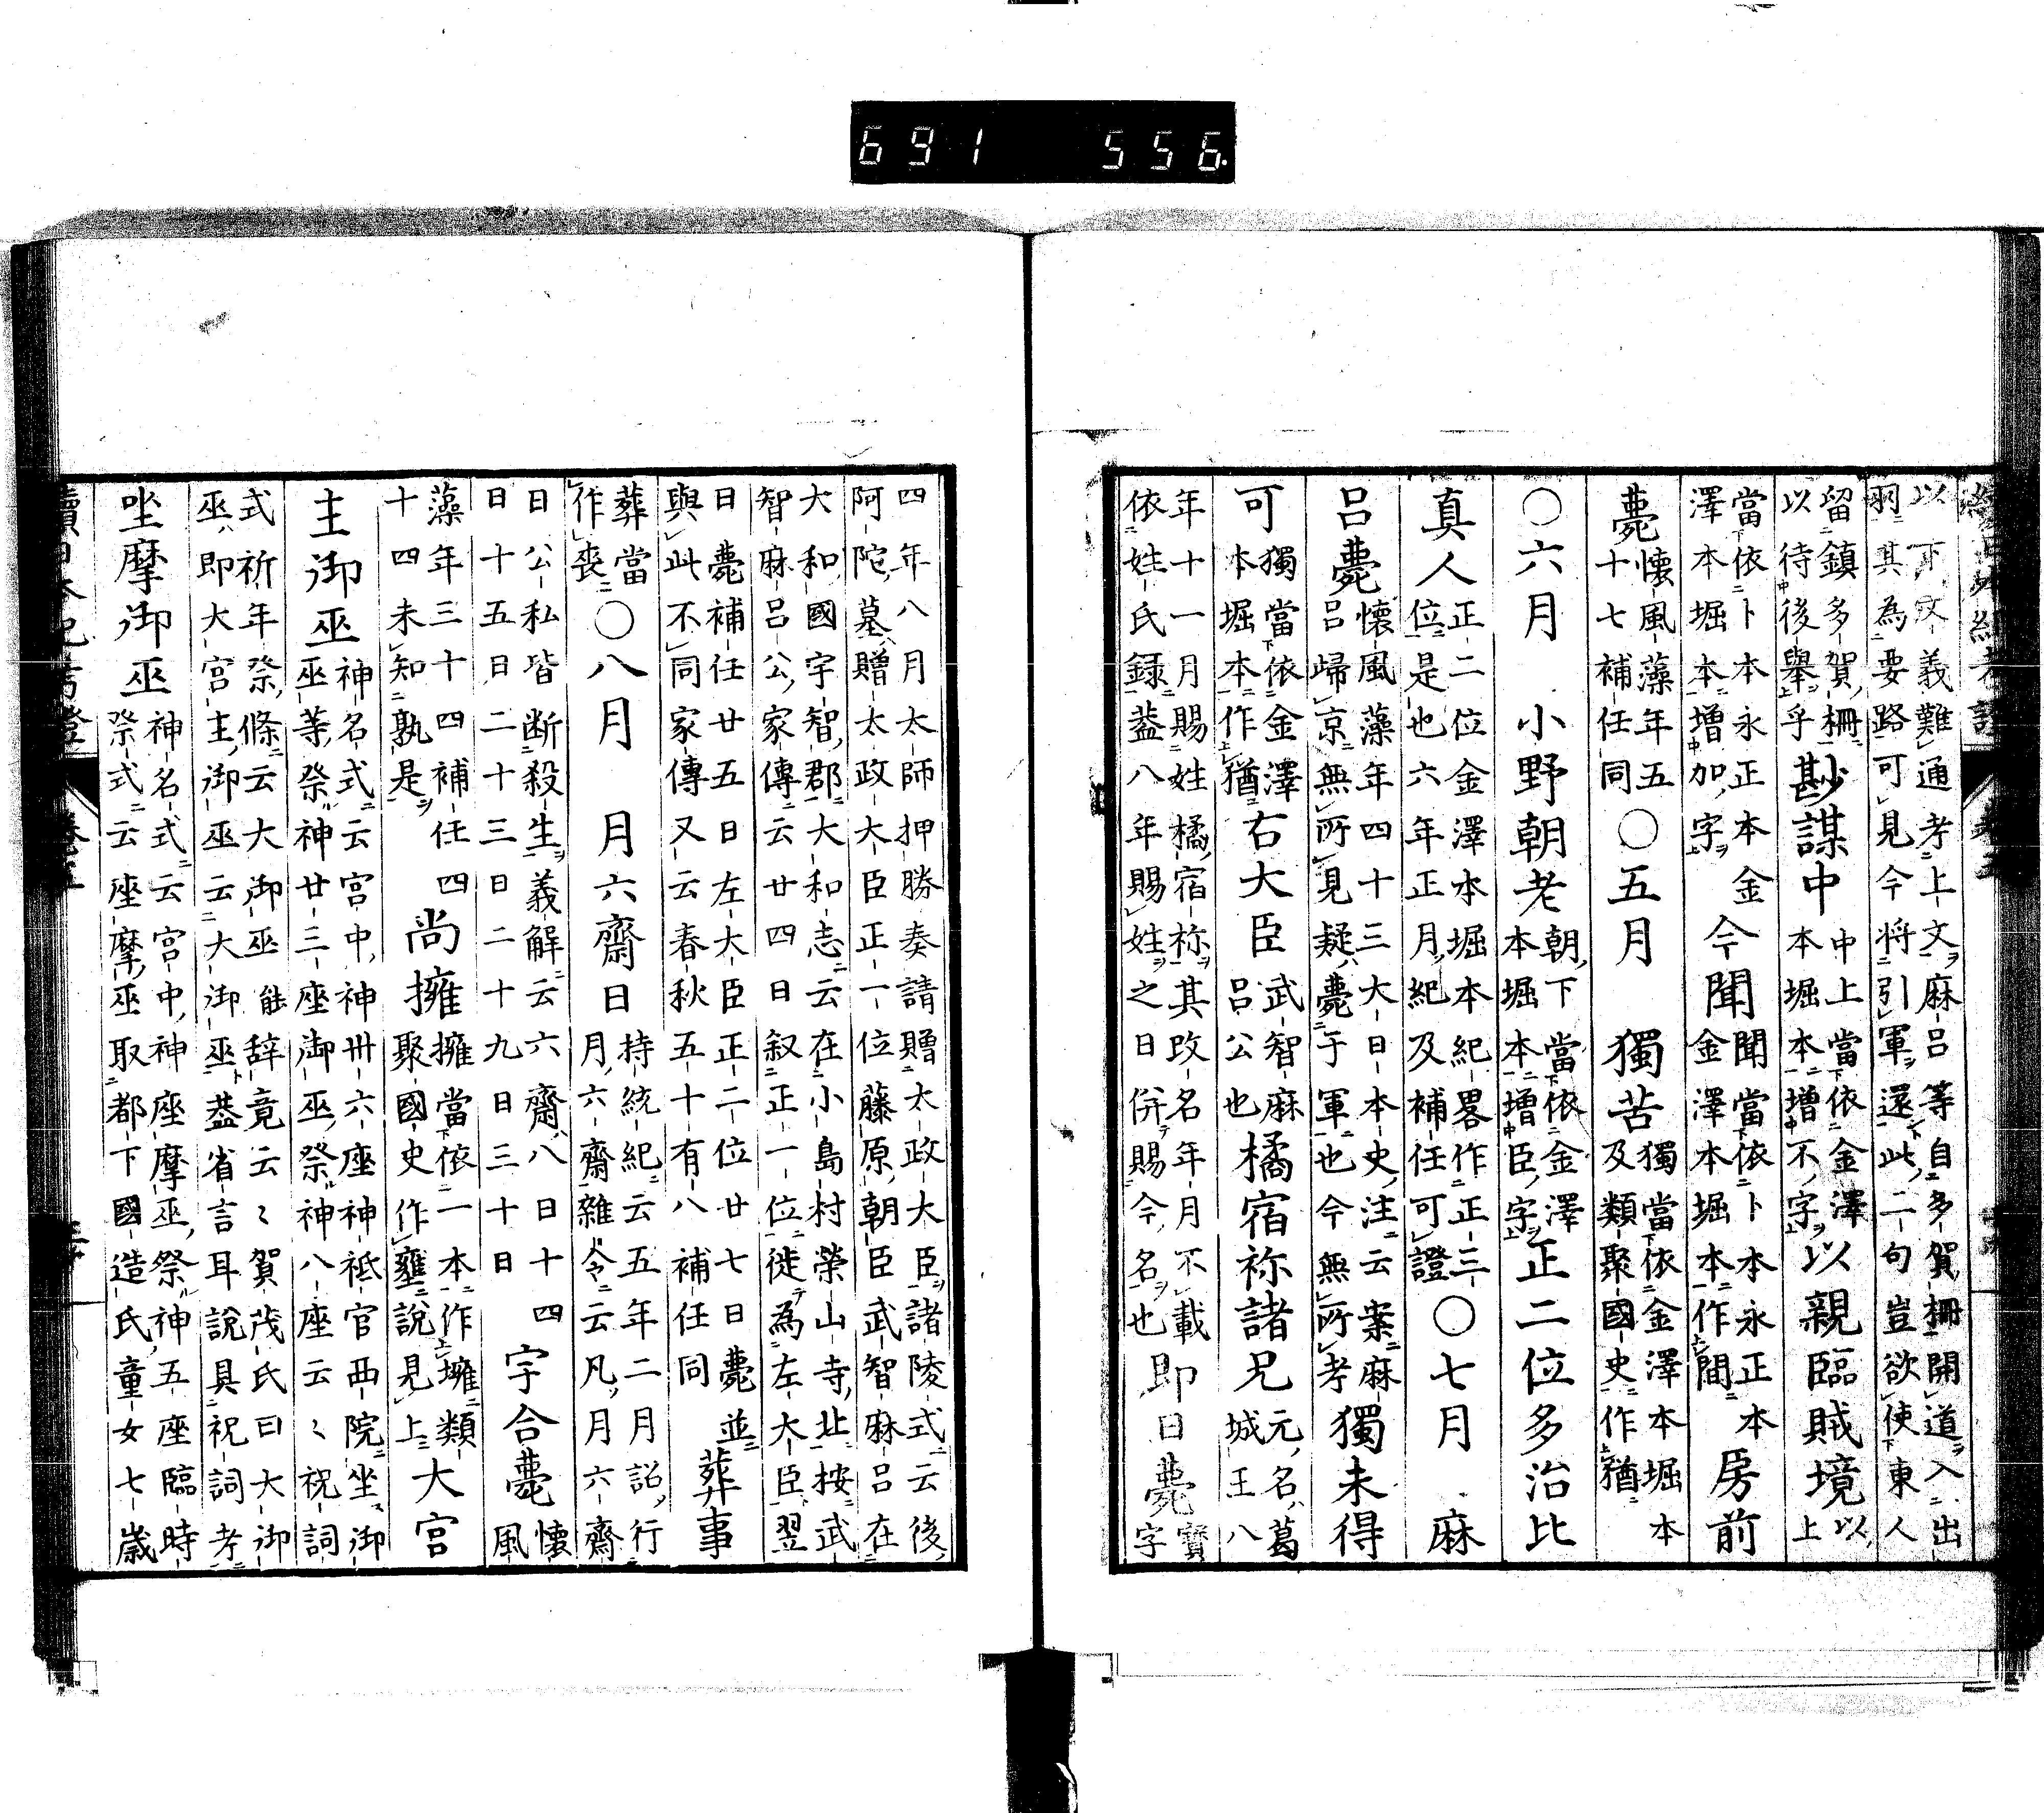 691 556.
以下文義難通考上文麻呂等自多賀柵開道入出
羽其為要路可見今将引軍還此二句豈欲使東人
留鎮多賀柵
以待後舉乎
尠謀中
中上當依金澤
本堀本増不字
以親臨賊境
以上
當依卜本永正本金
澤本堀本増加字
今聞
聞當依卜本永正本
金澤本堀本作間
房前
薨
懐風藻年五
十七補任同
○五月　獨苦
獨當依金澤本堀本
及類聚國史作猶
○六月　小野朝老
朝下當依金澤
本堀本増臣字
正二位多治比
真人
正二位金澤本堀本紀畧作正三
位是也六年正月紀及補任可證
○七月　麻
呂薨
懐風藻年四十三大日本史注云案麻
呂歸京無所見疑薨于軍也今無所考
獨未得
可
獨當依金澤
本堀本作猶
右大臣
武智麻
呂公也
橘宿祢諸兄
元名葛
城王八
年十一月賜姓橘宿祢其改名年月不載
依姓氏録蓋八年賜姓之日併賜今名也
即日薨
寶
字
四年八月太師押勝奏請贈太政大臣諸陵式云後
阿陀墓贈太政大臣正一位藤原朝臣武智麻呂在
大和國宇智郡大和志云在小島村榮山寺北按武
智麻呂公家傳云廿四日叙正一位徙為左大臣翌
日薨補任廿五日左大臣正二位廿七日薨並
與此不同家傳又云春秋五十有八補任同
葬事
葬當
作喪
○八月　月六齋日
持統紀云五年二月詔行
月六齋雜令云凡月六齋
日公私皆断殺生義解云六齋八日十四
日十五日二十三日二十九日三十日
宇合薨
懐
風
藻年三十四補任四
十四未知孰是
尚擁
擁當依一本作壅類
聚國史作壅説見上
大宮
主御巫
神名式云宮中神卅六座神祗官西院坐御
巫等祭神廿三座御巫祭神八座云〻祝詞
式祈年祭條云大御巫能辞竟云〻賀茂氏曰大御
巫即大宮主御巫云大御巫蓋省言耳説具祝詞考
坐摩御巫
神名式云宮中神座摩巫祭神五座臨時
祭式云座摩巫取都下國造氏童女七歳